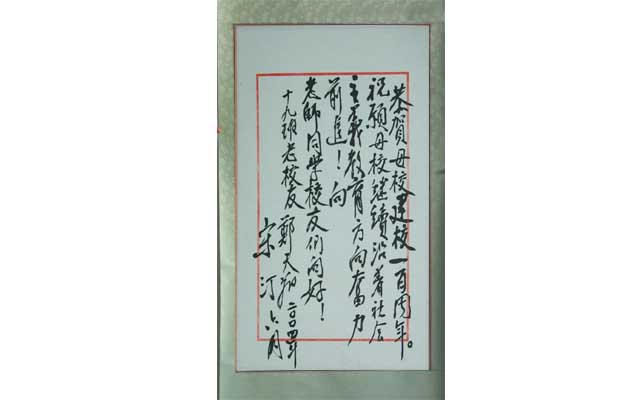 恭賀母校建校一百周年。
祝願母校继續沿着社会
主義教育方向奮力
前進！向
老師同学校友们问好！
十九班老校友 鄭天翔
宋汀 二〇〇四年
六月